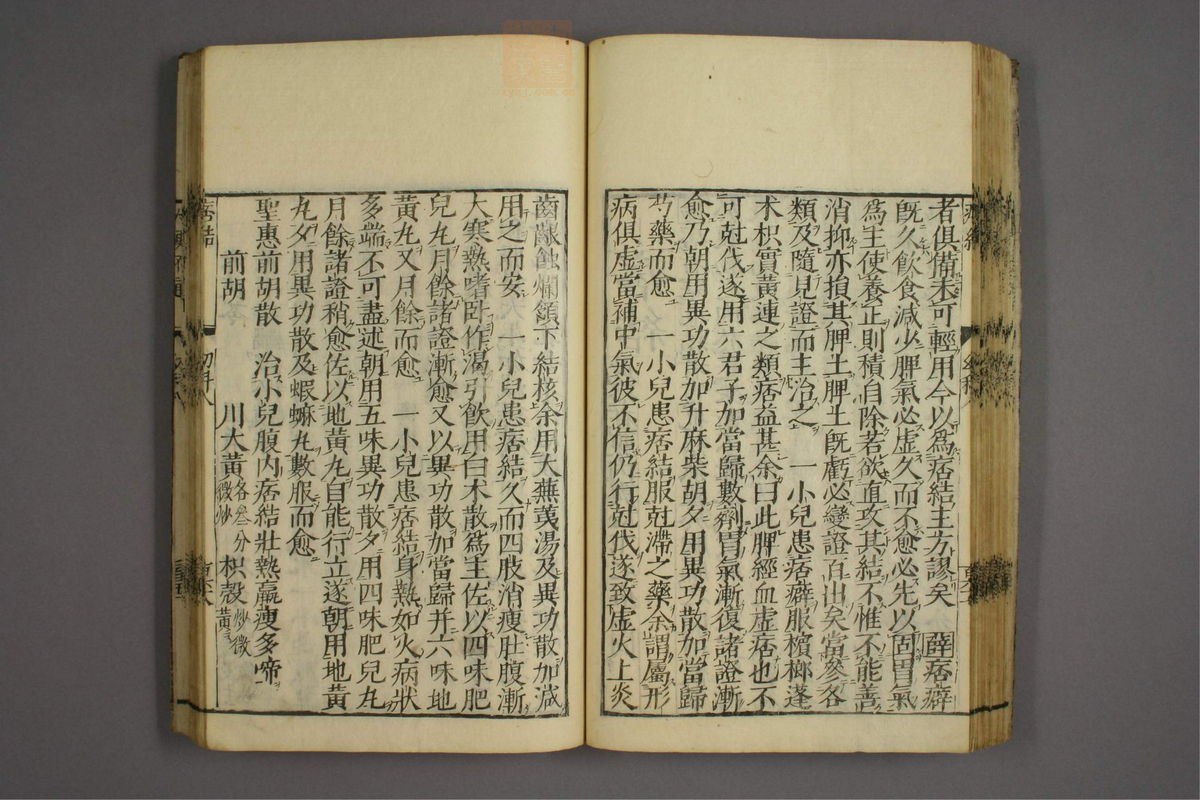 者俱備未可輕用今以為痞結主方謬矣 薛痞癖
既久飲食減少脾氣必虛久而不愈必先以固胃氣
為主使養正則積自除若欲直攻其結不惟不能善
消抑亦損其脾土脾土既虧必變證百出矣當參各
類及隨見證而主治之 一小兒患痞癖服檳榔蓬
术枳實黃連之類痞益甚余曰此脾經血虛痞也不
可尅伐遂用六君子加當歸數劑胃氣漸復諸證漸
愈乃朝用異功散加升麻柴胡夕用異功散加當歸
芍藥而愈 一小兒患痞結服尅滯之藥余謂屬形
病俱虛當補中氣彼不信仍行尅伐遂致虛火上炎
齒齦蝕爛頷下結核余用大蕪荑湯及異功散加減
用之而安 一小兒患痞結久而四肢消瘦肚腹漸
大寒熱嗜卧作渴引飲用白术散為主佐以四味肥
兒丸月餘諸證漸愈又以異功散加當歸并六味地
黃丸又月餘而愈 一小兒患痞結身熱如火病狀
多端不可盡述朝用五味異功散夕用四味肥兒丸
月餘諸證稍愈佐以地黃丸自能行立遂朝用地黃
丸夕用異功散及蝦蟆丸數服而愈
聖惠前胡散 治小兒腹內痞結壯熱羸瘦多啼
前胡 川大黃各叄分微炒 枳殼炒微黃
痞結